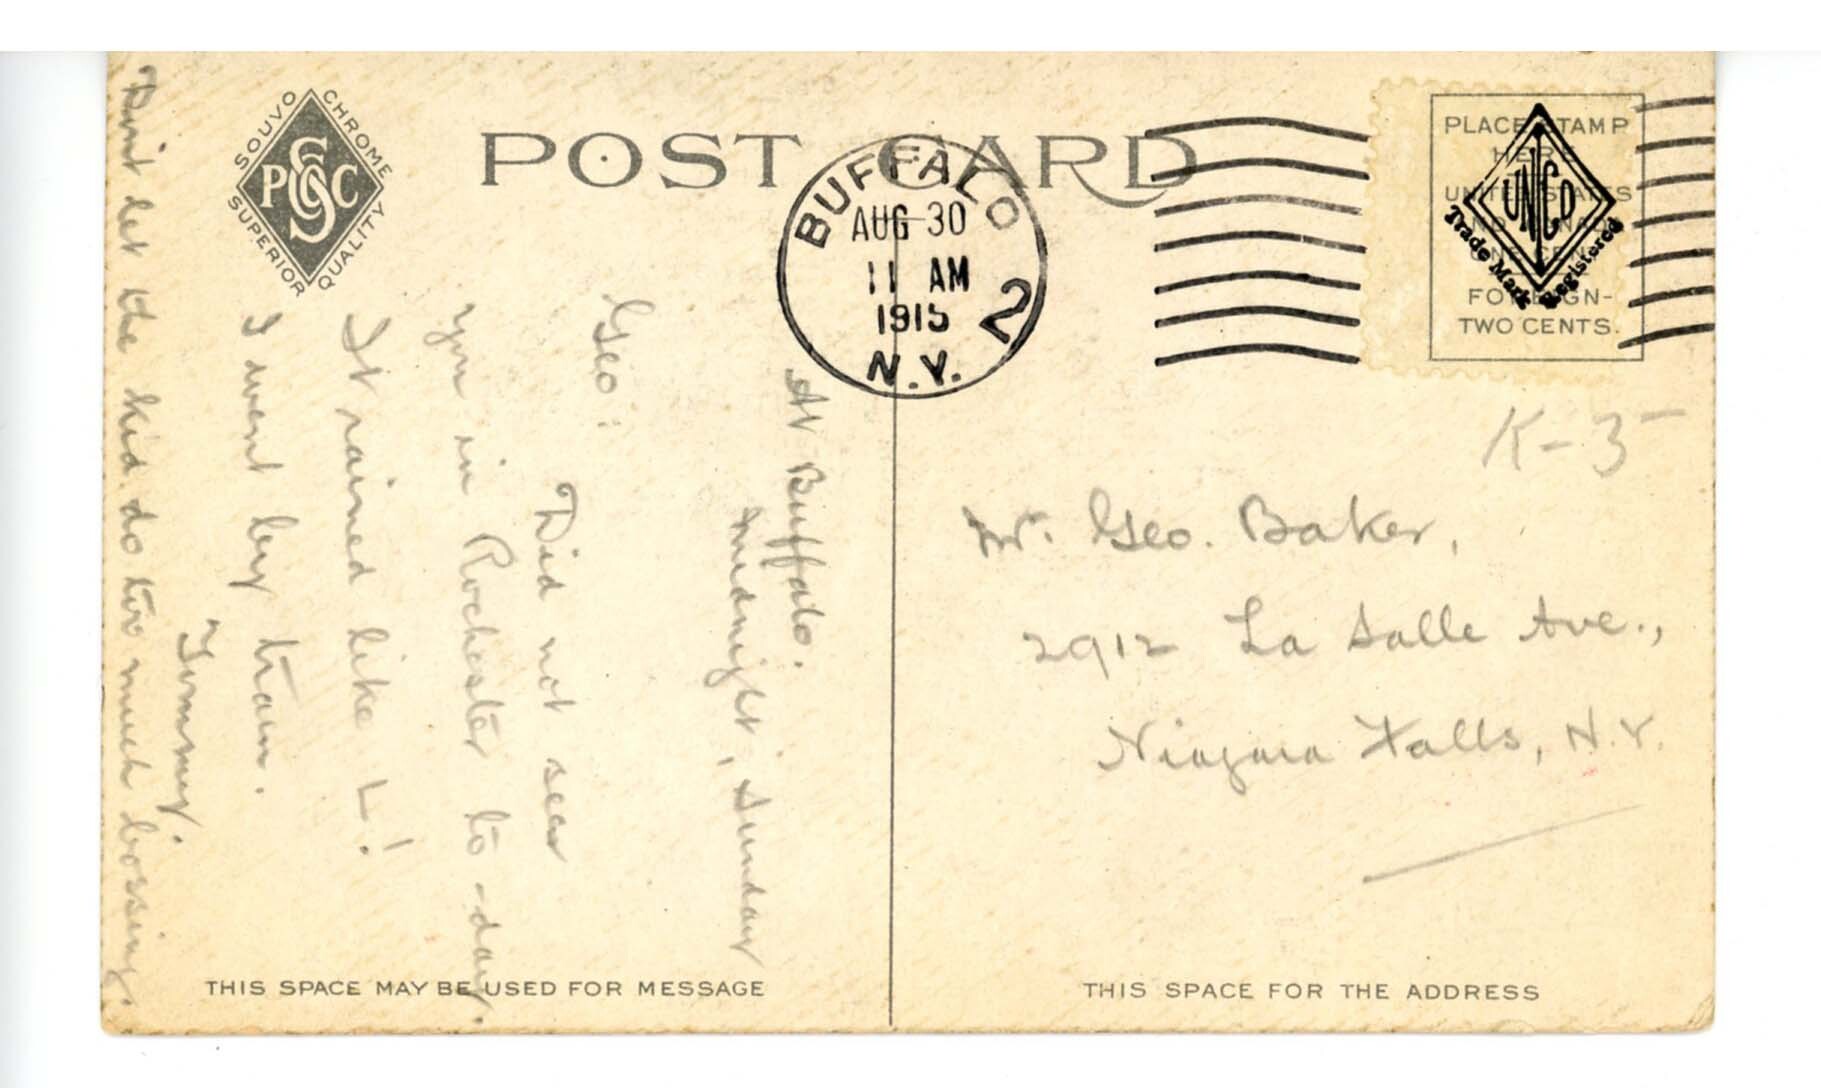 SOUVO CHROME
P S C
SUPERIOR QUALITY
POST CARD
BUFFALO
AUG 30
11 AM
1915
N.Y.
2
PLACE STAMP
HERE
UNITED STATES
FOREIGN-
TWO CENTS.
UNCO
Trade Mark Registered
At Buffalo.
Midnight, Sunday
Geo:
Did not see
you in Rochester to-day.
It rained like L!
I went by train.
Timmy.
Don't let the kid do too much bossing.
K-3
Mr. Geo. Baker,
2912 La Salle Ave.,
Niagara Falls, N.Y.
THIS SPACE MAY BE USED FOR MESSAGE
THIS SPACE FOR THE ADDRESS